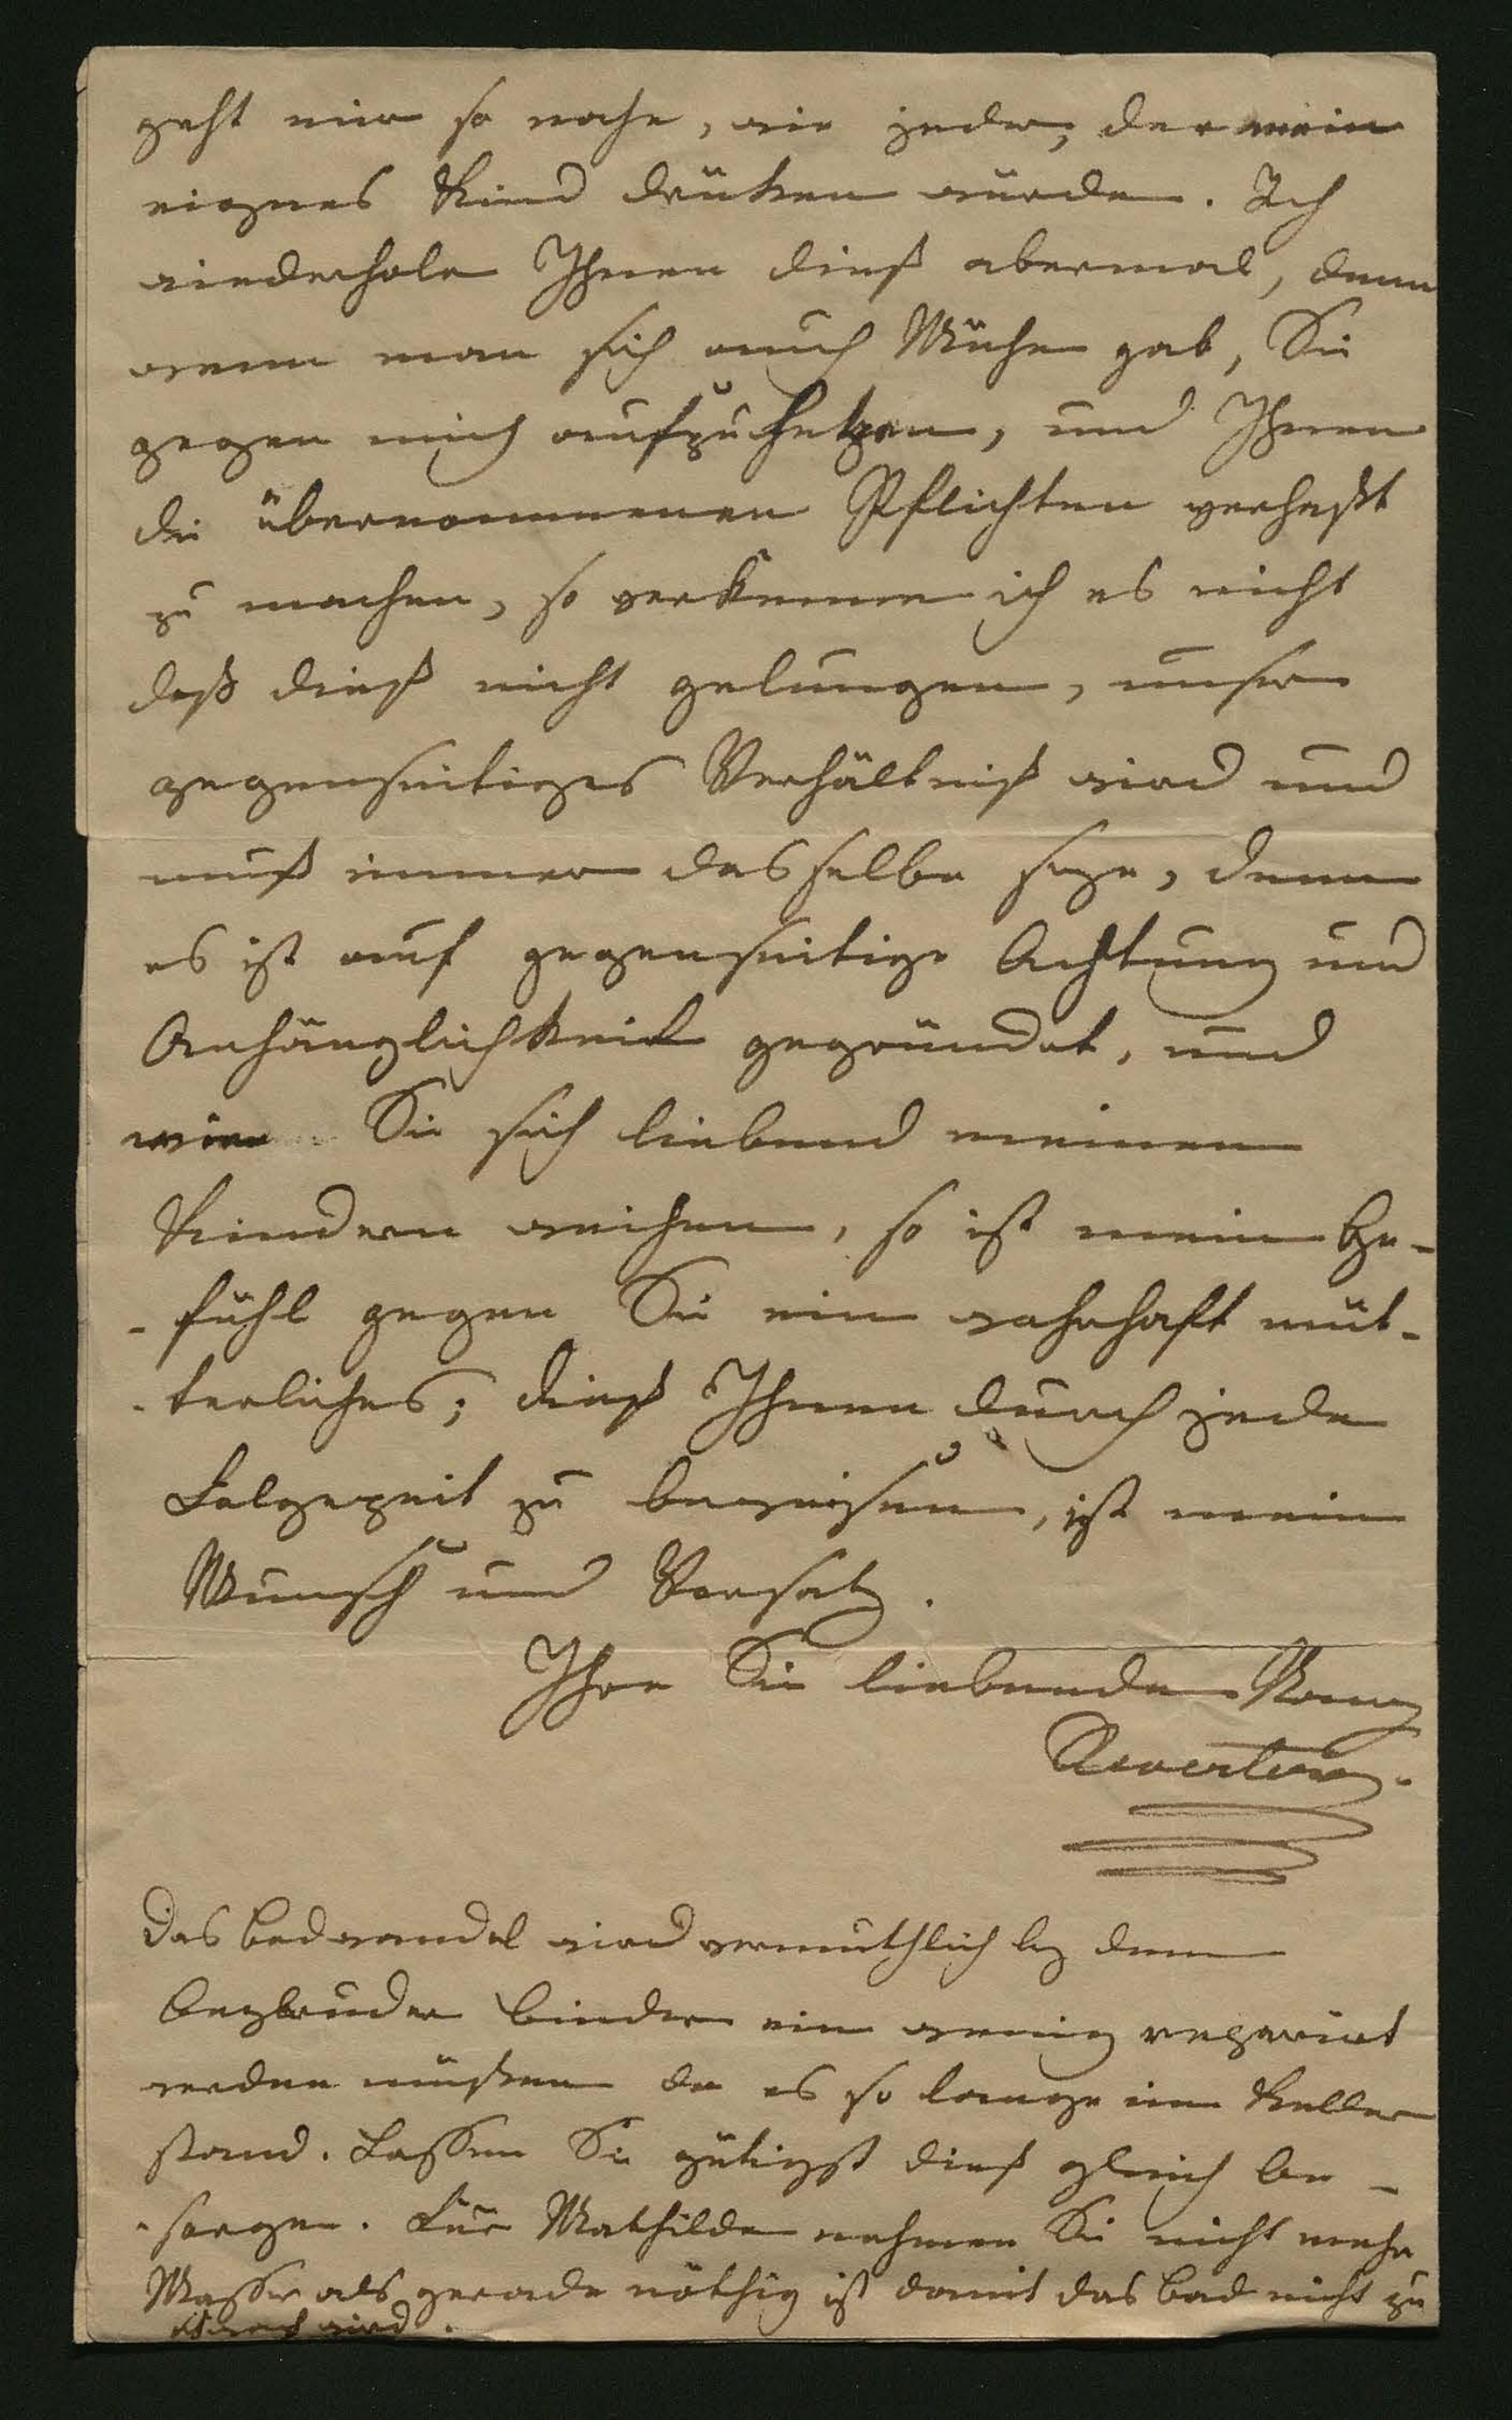 geht mir so nahe, wie jeder, der mein
eignes Kind drücken würde. Ich
wiederhole Ihnen dieß abermal, denn
wenn man sich auch Mühe gab, Sie
gegen mich aufzuhetzen, und Ihnen
die übernommenen Pflichten verhaßt
zu machen, so verkenne ich es nicht
daß dieß nicht gelungen, unser
gegenseitiges Verhältniß wird und
muß immer dasselbe seye, denn
es ist auf gegenseitige Achtung und
Anhänglichkeit gegründet, und
wie Sie sich liebend meinen
Kindern weihen, so ist mein Ge-
-fühl gegen Sie ein wahrhaft müt-
-terliches; dieß Ihnen durch jede
zu beweisen, ist mein
Wunsch und Vorsatz.
Ihre Sie liebende
Das Badwandel wird vermuthlich bey dem
binder ein wenig reparirt
werden müßen da es so lange im Keller
stand. Lassen Sie gütigst dieß gleich be-
-sorgen. Für Mathilde nehmen Sie nicht mehr
Wasser als gerade nöthig ist damit das Bad nicht zu
schwach wird.